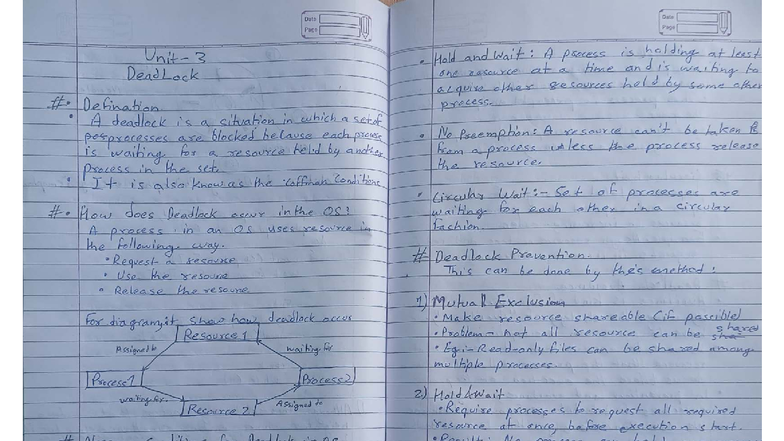 Date
Page
Unit-3
DeadLock
#• Defination
• A deadlock is a situation in which a set of
processes are blocked because each process
is waiting for a resource held by another
process in the set.
• It is also know as the Coffman Conditions
#• How does Deadlock occur in the OS?
A process in an OS uses resource in
the following way.
• Request a resource
• Use the resource
• Release the resource
For diagram, it show how deadlock occur
Resource 1
Assigned to
waiting for
Process1
Process2
waiting for
Assigned to
Resource 2
Date
Page
• Hold and Wait: A process is holding at least
one resource at a time and is waiting to
acquire other resources held by some other
process.
• No Preemption: A resource can't be taken
from a process unless the process release
the resource.
• Circular Wait:- Set of processes are
waiting for each other in a circular
fashion.
# Deadlock Prevention
This can be done by this method:
1) Mutual Exclusion
• Make resource shareable (if possible)
• Problem - not all resource can be shared
• Eg:- Read-only files can be shared among
multiple processes.
2) Hold & wait
• Require processes to request all required
resource at once, before execution start.